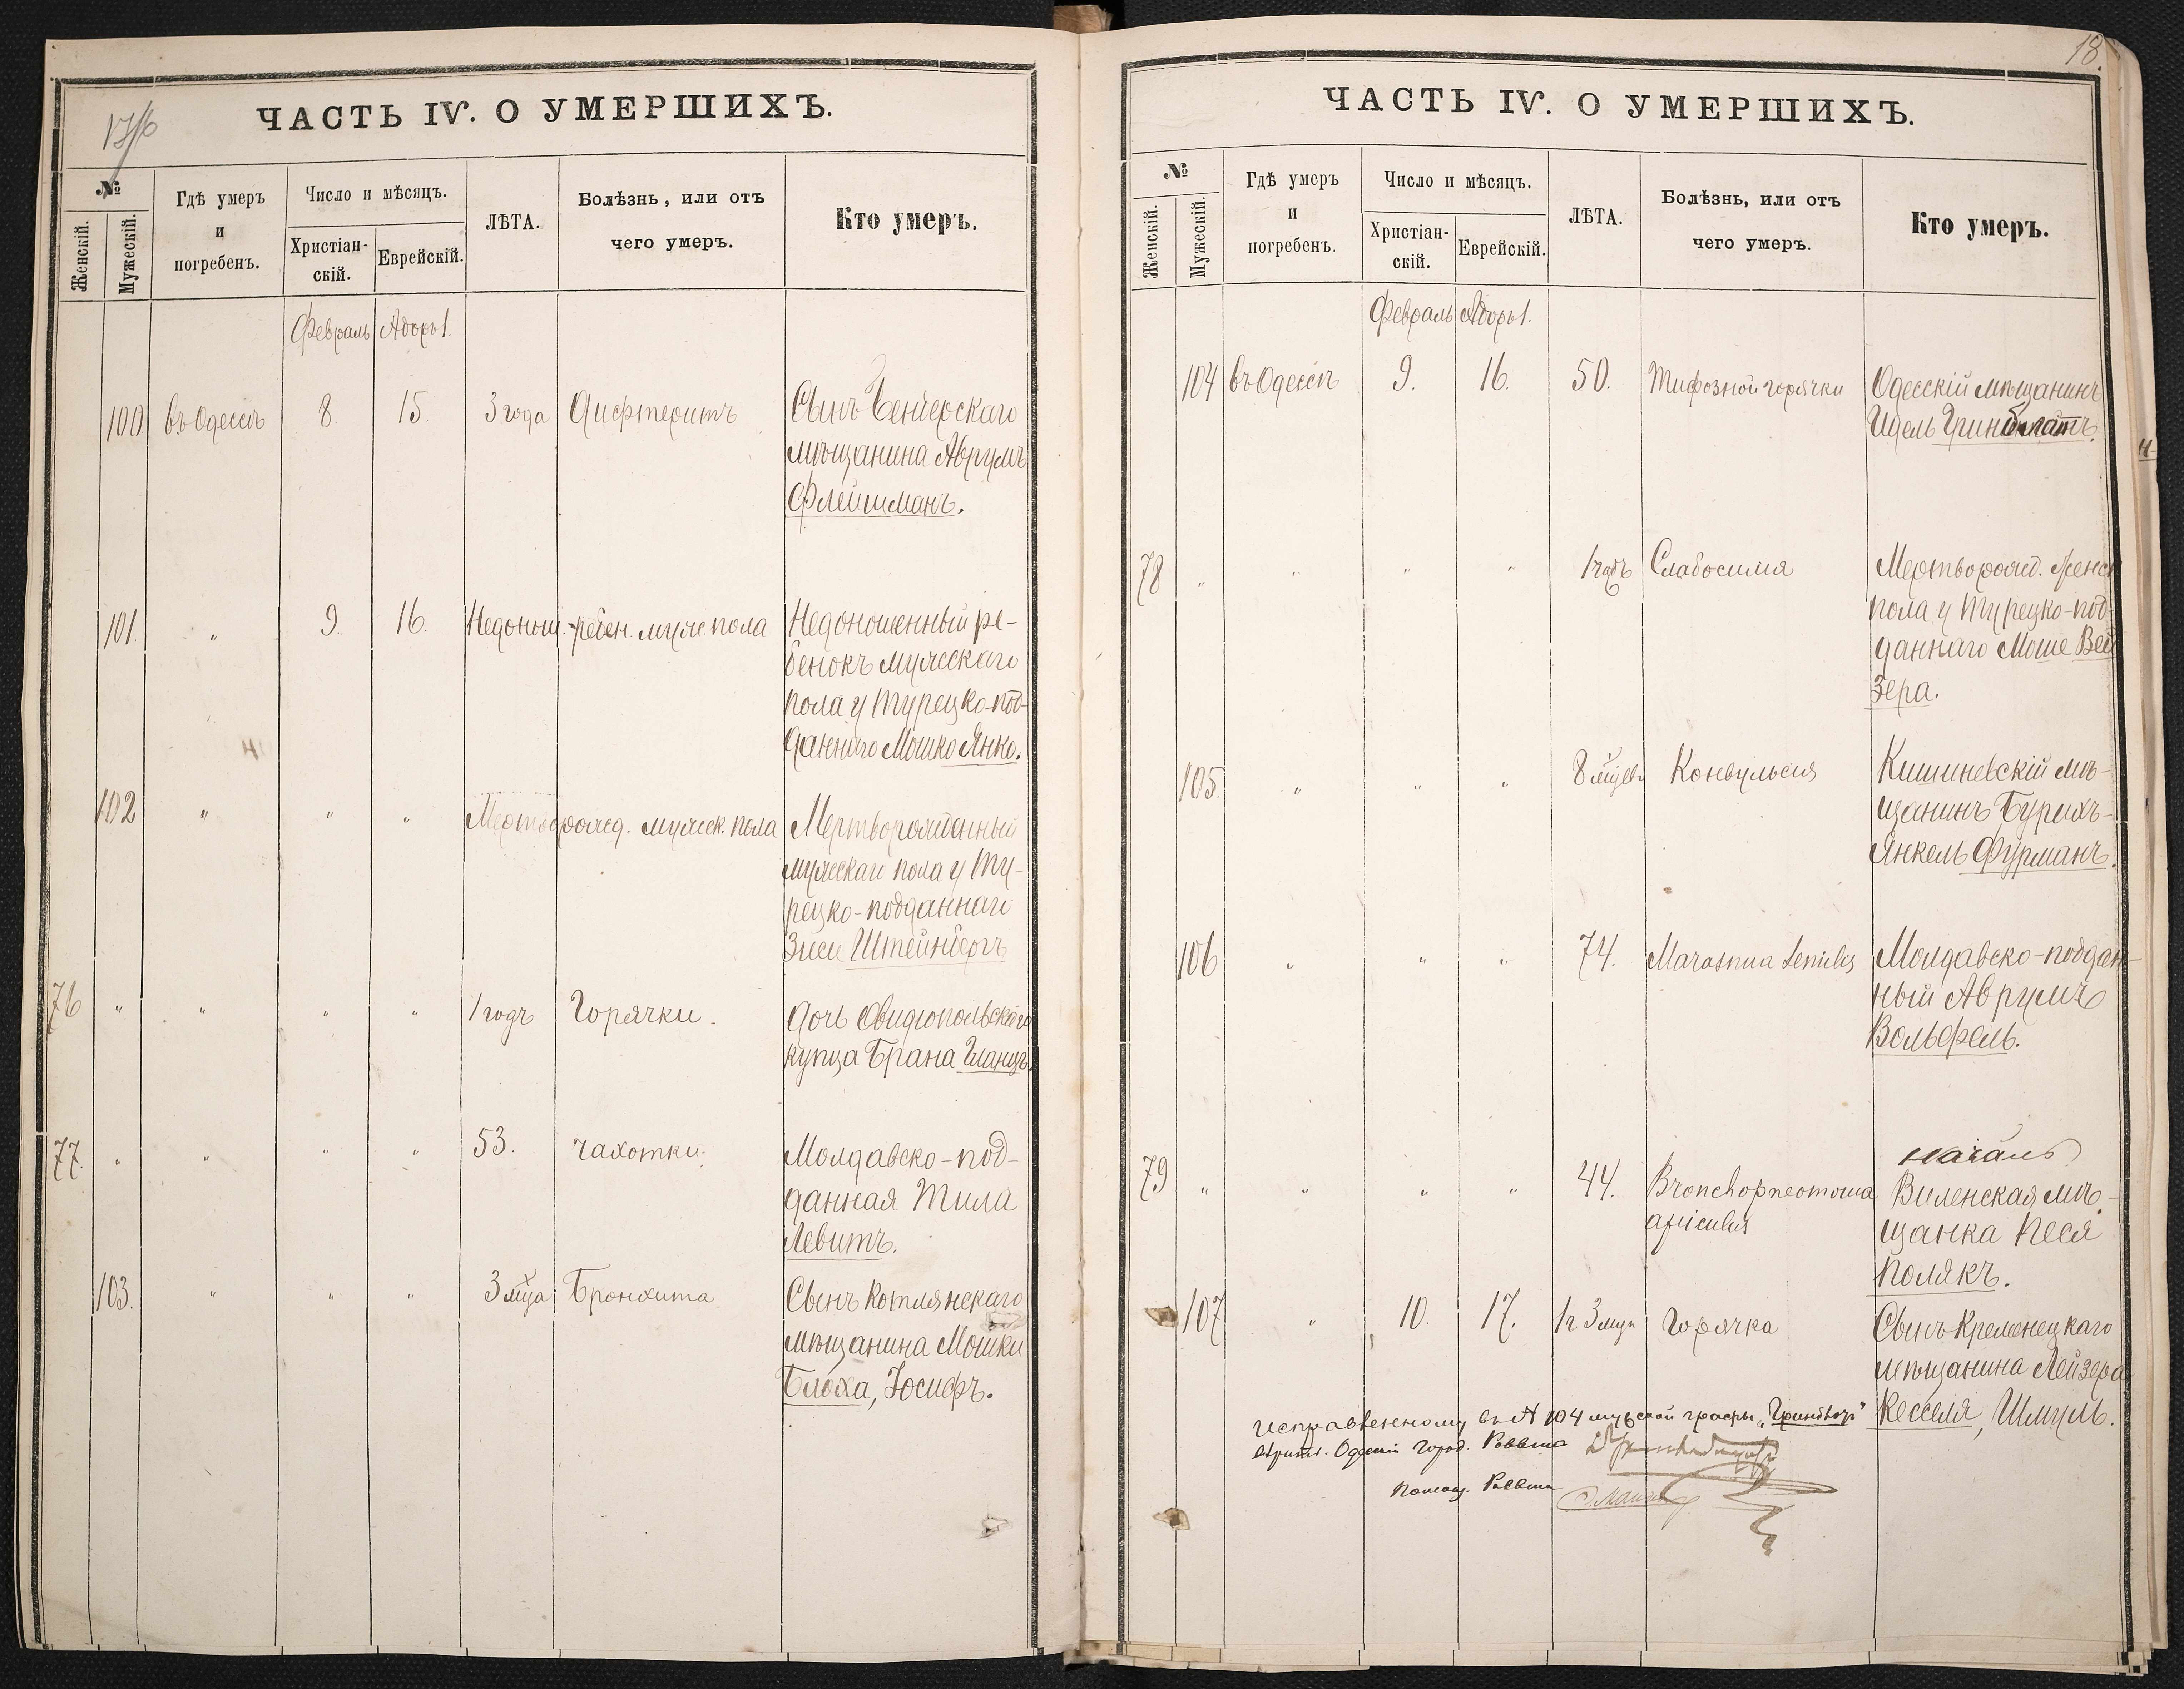 ЧАСТЬ IV. О УМЕРШИХЪ.
№
Женскій.
Мужескій.
Гдѣ умеръ
и
погребенъ.
Число и мѣсяцъ.
Христіан-
скій.
Еврейскій.
ЛѢТА.
Болѣзнь, или отъ
чего умеръ.
Кто умеръ.
Февраль Адоръ 1.
100 въ Одессѣ 8 15. 3 года Дифтеритъ Сынъ Бендерскаго
мѣщанина Аврумъ
Флейшманъ.
101. " 9. 16. Недонош. ребен. муж. пола Недоношенный ре-
бенокъ мужескаго
пола у Турецко-под-
даннаго Мошко Янко.
102 " " " Мертворожд. мужеск. пола Мертворожденный
мужескаго пола у Ту-
рецко-подданнаго
Зиси Штейнбергъ
76 " " " " 1 годъ Горячки. Дочь Овидіопольскаго
купца Брана Гланцъ.
77. " " " " 53. Чахотки. Молдавско-под-
данная Тила
Левитъ.
103. " " " 3 м-ца Бронхита Сынъ Котлянскаго
мѣщанина Мошки
Блоха, Іосифъ.
18.
ЧАСТЬ IV. О УМЕРШИХЪ.
№
Женскій.
Мужескій.
Гдѣ умеръ
и
погребенъ.
Число и мѣсяцъ.
Христіан-
скій.
Еврейскій.
ЛѢТА.
Болѣзнь, или отъ
чего умеръ.
Кто умеръ.
Февраль Адоръ 1.
104 въ Одессѣ 9. 16. 50. Тифозной горячки Одесскій мѣщанинъ
Идель Гринблатъ.
78 " " " " 1 годъ Слабосилія Мертворожд. женск
пола у Турецко-под-
даннаго Моше Вей
зера.
105. " " " 8 м-цевъ Конвульсія Кишиневскій мѣ-
щанинъ Бурихъ-
Янкель Фурманъ.
106 " " " 74. Marasmua Senilis Молдавско-поддан-
ный Аврумъ
Вольфель.
79 " " " " 44. Bronchopneomonia Виленская мѣ-
щанка Песя
Полякъ.
107 " 10. 17. 1 г 3 м-ца Горячка Сынъ Кременецкаго
мѣщанина Лейзера
Кесселя, Шмуль.
Исправленному въ № 104 мужской графы "Гринблатъ"
вѣрить. Одесскій Город. Раввинъ
Помощ. Раввина